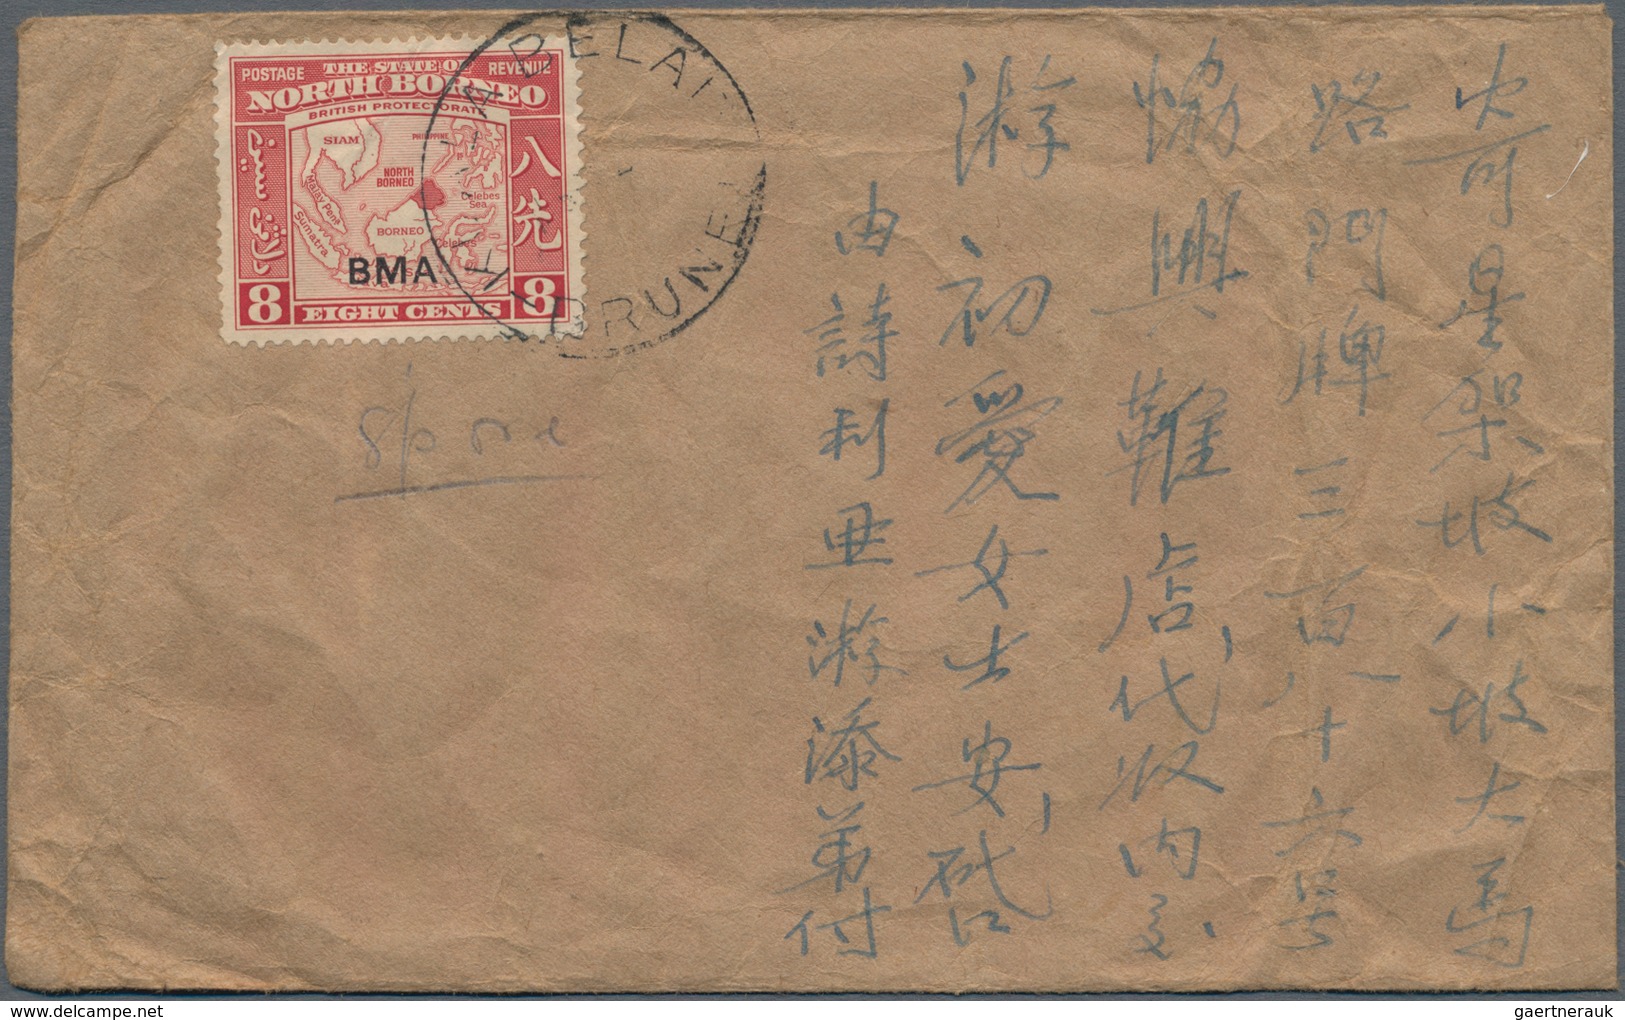 POSTAGE THE STATE OF REVENUE
NORTH BORNEO
BRITISH PROTECTORATE
SIAM
PHILIPPINE
NORTH BORNEO
Malay Penª
Celebes Sea
Sumatra
BORNEO
Celebes
八先
BMA
8 EIGHT CENTS 8
KUALA BELAIT
BRUNEI
S/pore
寄星架坡小坡大馬
路門牌三百八十六號
協興難店代收內交
游初愛女士安啓
由詩利亜游添弟付
gaertnerauk